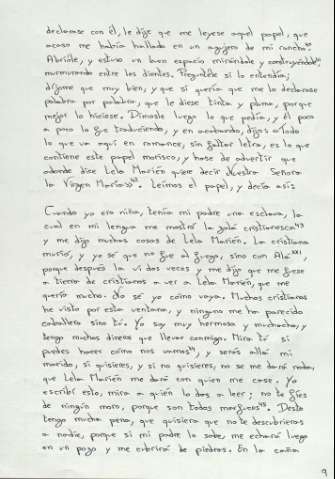 declarase con él, le dije que me leyese aquel papel, que
acaso me había hallado en un agujero de mi rancho.
Abrióle, y estuvo un buen espacio mirándole y construyéndole,
murmurando entre los dientes. Preguntéle si lo entendía;
díjome que muy bien, y que si quería que me lo declarase
palabra por palabra, que le diese tinta y pluma, porque
mejor lo hiciese. Dímosle luego lo que pedía, y él poco
a poco lo fue traduciendo, y en acabando, dijo: «Todo
lo que va aquí en romance, sin faltar letra, es lo que
contiene este papel morisco, y hase de advertir que
adonde dice Lela Marién quiere decir Nuestra Señora
la Virgen María». Leímos el papel, y decía así:
Cuando yo era niña, tenía mi padre una esclava, la
cual en mi lengua me mostró la zalá cristianesca 43
y me dijo muchas cosas de Lela Marién. La cristiana
murió, y yo sé que no fue al fuego, sino con Alá,
porque después la vi dos veces y me dijo que me fuese
a tierra de cristianos a ver a Lela Marién, que me
quería mucho. No sé yo cómo vaya. Muchos cristianos
he visto por esta ventana, y ninguno me ha parecido
caballero sino tú. Yo soy muy hermosa y muchacha, y
tengo muchos dineros que llevar conmigo. Mira tú si
puedes hacer cómo nos vamos, y serás allá mi
marido, si quisieres, y si no quisieres, no se me dará nada,
que Lela Marién me dará con quien me case. Yo
escribí esto, mira a quién lo das a leer; no te fíes
de ningún moro, porque son todos marfuces 45. Desto
tengo mucha pena, que quisiera que no te descubrieras
a nadie, porque si mi padre lo sabe, me echará luego
en un pozo y me cubrirá de piedras. En la caña
9